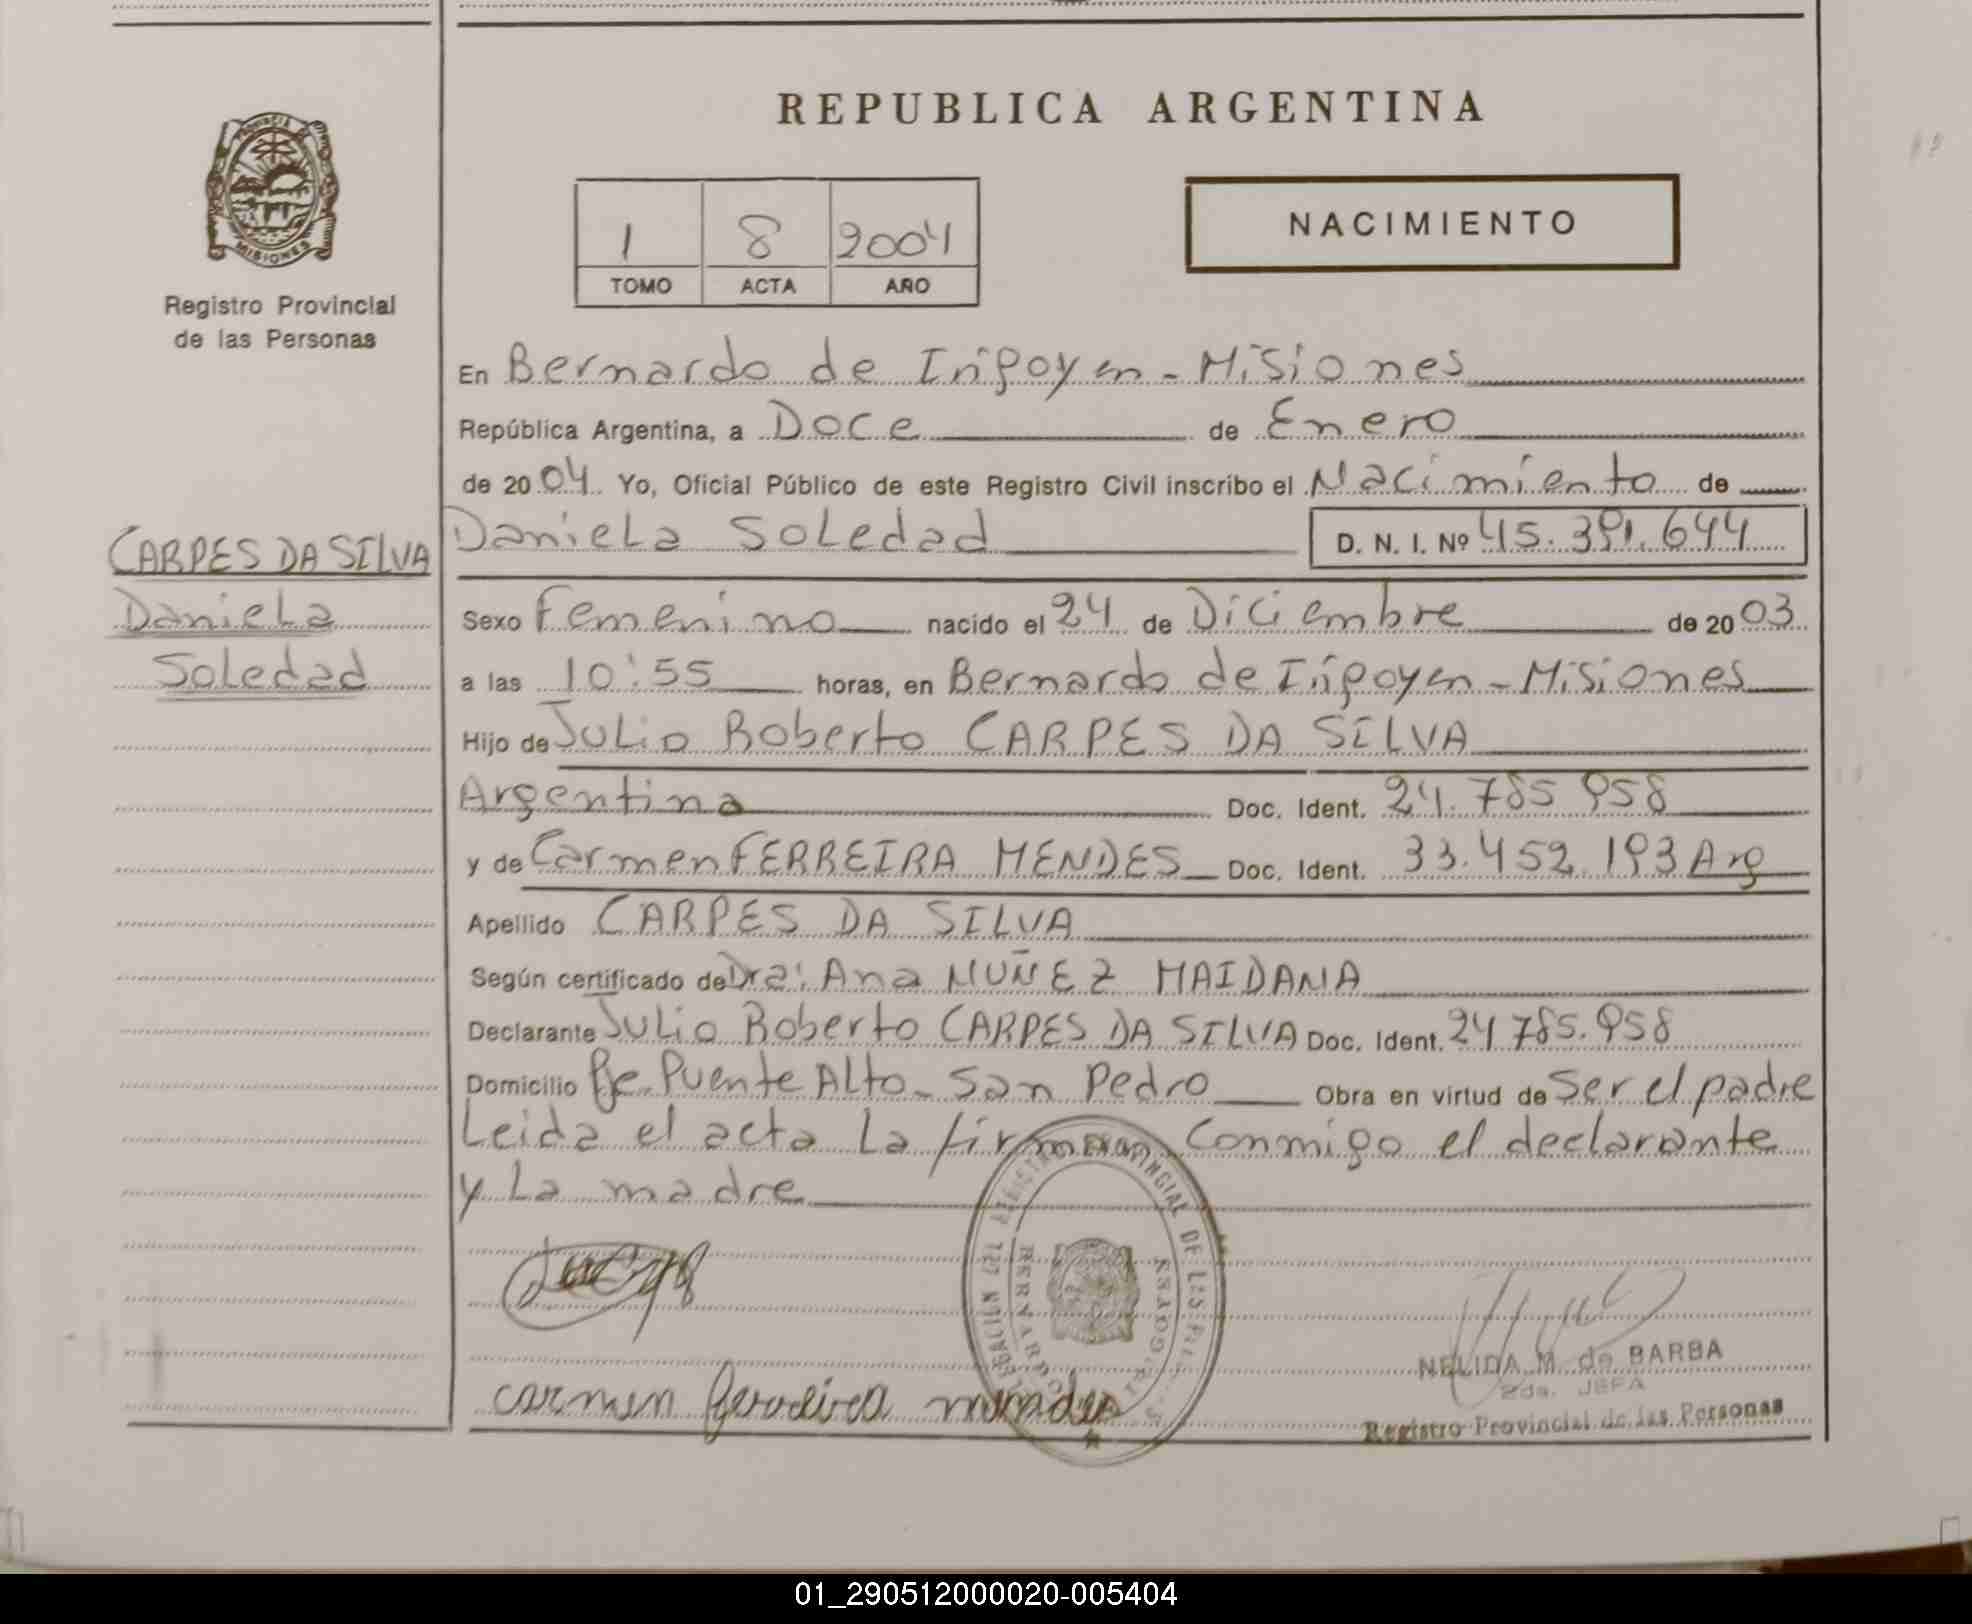 REPUBLICA ARGENTINA
PROVINCIA
MISIONES
Registro Provincial
de las Personas
1 8 2004
TOMO ACTA AÑO
NACIMIENTO
En Bernardo de Irigoyen - Misiones
República Argentina, a Doce de Enero
de 2004 Yo, Oficial Público de este Registro Civil inscribo el Nacimiento de
CARPES DA SILVA
Daniela
Soledad
Daniela Soledad D. N. I. Nº 45.391.644
Sexo Femenino nacido el 24 de Diciembre de 2003
a las 10:55 horas, en Bernardo de Irigoyen - Misiones
Hijo de Julio Roberto CARPES DA SILVA
Argentina Doc. Ident. 24.785 958
y de Carmen FERREIRA MENDES Doc. Ident. 33.452.193 Arg
Apellido CARPES DA SILVA
Según certificado de Dra: Ana NUÑEZ MAIDANA
Declarante Julio Roberto CARPES DA SILVA Doc. Ident. 24 785.958
Domicilio Pje. Puente Alto - San Pedro Obra en virtud de Ser el padre
Leida el acta la firman Conmigo el declarante
y La madre
carmen ferreira mendes
NELIDA M. de BARBA
2da. JEFA
Registro Provincial de las Personas
01_290512000020-005404